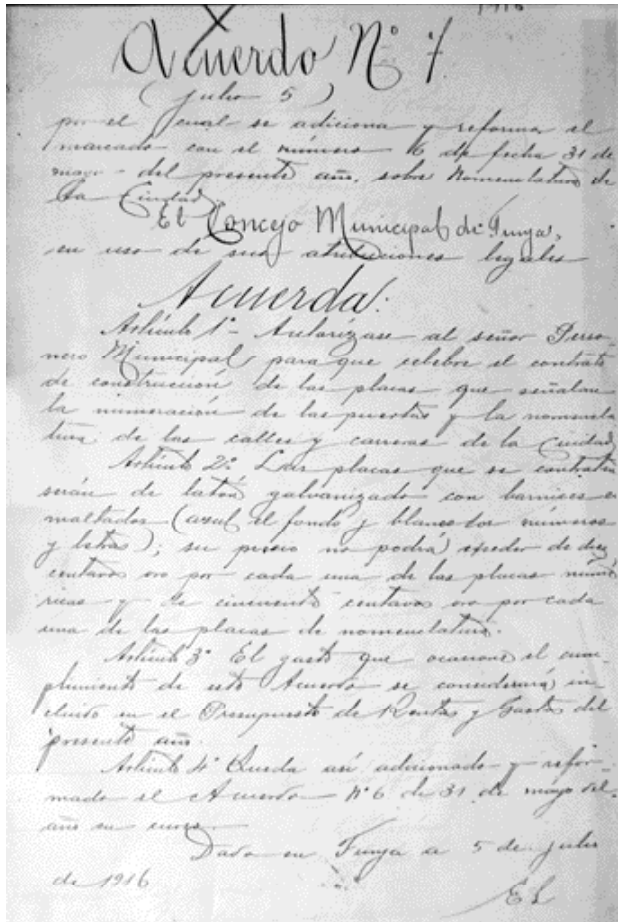 1916
Acuerdo Nº 7
(julio 5)
por el cual se adiciona y reforma el
marcado con el número 6 de fecha 31 de
mayo del presente año, sobre Nomenclatura de
la Ciudad
El Concejo Municipal de Tunja,
en uso de sus atribuciones legales
Acuerda:
Artículo 1º - Autorízase al señor Perso-
nero Municipal para que celebre el contrato
de construcción de las placas que señalan
la numeración de las puertas y la nomencla
tura de las calles y carreras de la Ciudad
Artículo 2º Las placas que se contraten
serán de latón galvanizado con barnices es
maltados (azul el fondo y blanco los números
y letras); su precio no podrá exceder de diez
centavos oro por cada una de las placas numé
ricas y de cincuenta centavos oro por cada
una de las placas de nomenclatura.
Artículo 3º El gasto que ocasione el cum-
plimiento de este Acuerdo se considerará in-
cluido en el Presupuesto de Rentas y Gastos del
presente año.
Artículo 4º Queda así adicionado y refor-
mado el Acuerdo Nº 6 de 31 de mayo del
año en curso
Dado en Tunja a 5 de julio
de 1916
El